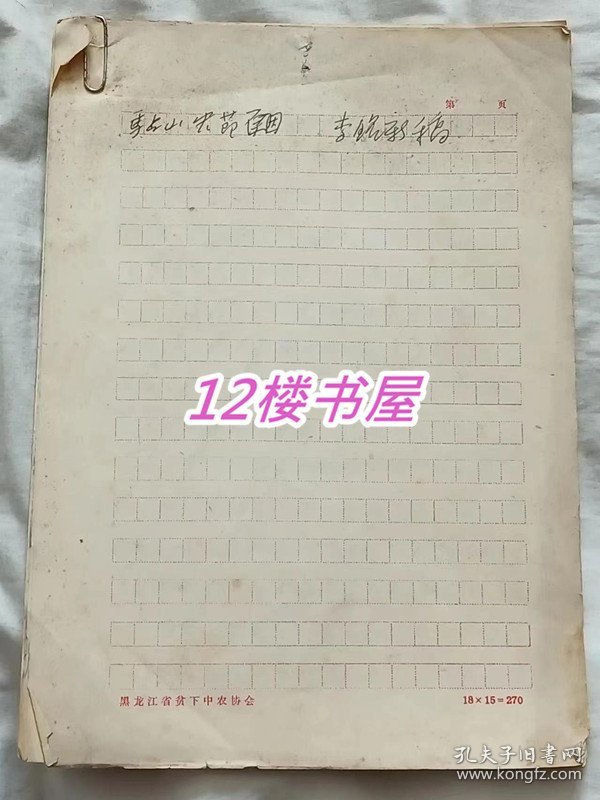 第 页
马占山 李 稿
12楼书屋
黑龙江省贫下中农协会 18×15=270
孔夫子旧书网
www.kongfz.com